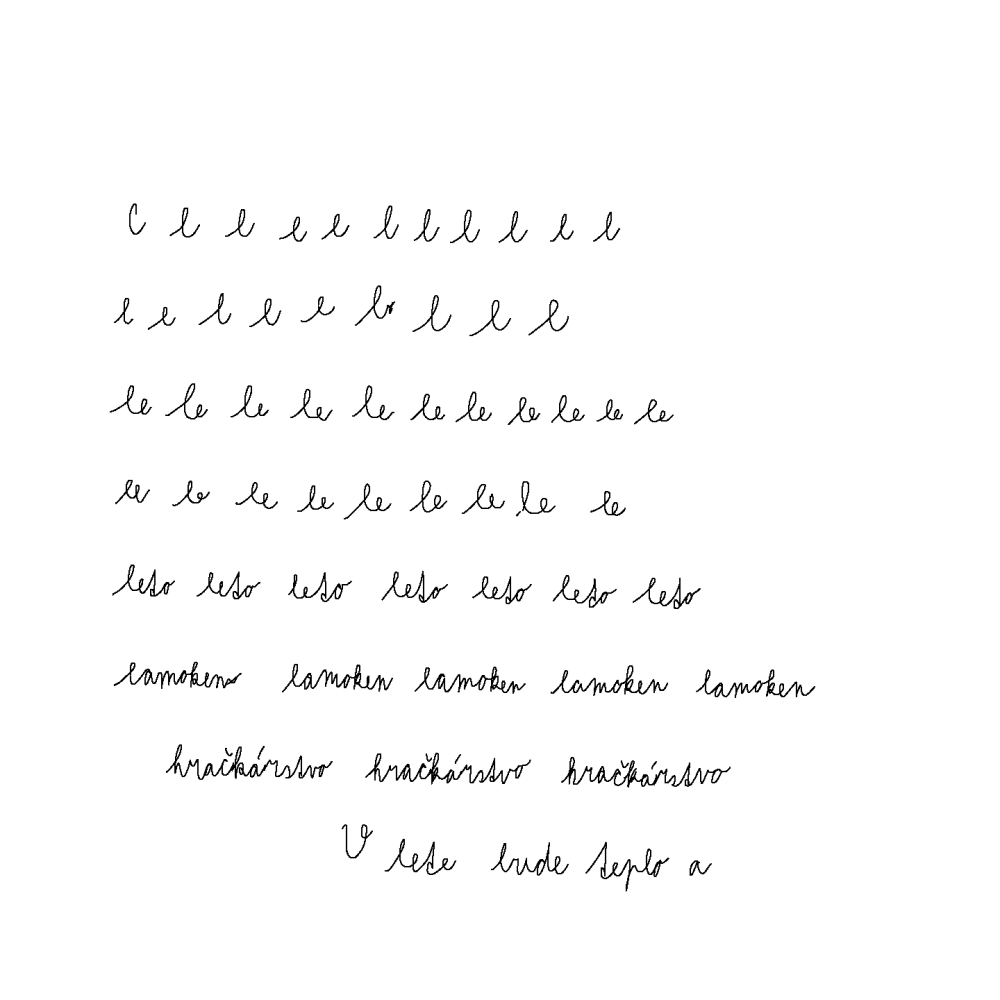 C l l l l l l l l l l
l l l l l l l l l
le le le le le le le le le le le
le le le le le le le le le
leto leto leto leto leto leto leto
lamoken lamoken lamoken lamoken lamoken
hračkárstvo hračkárstvo hračkárstvo
V lete bude teplo a